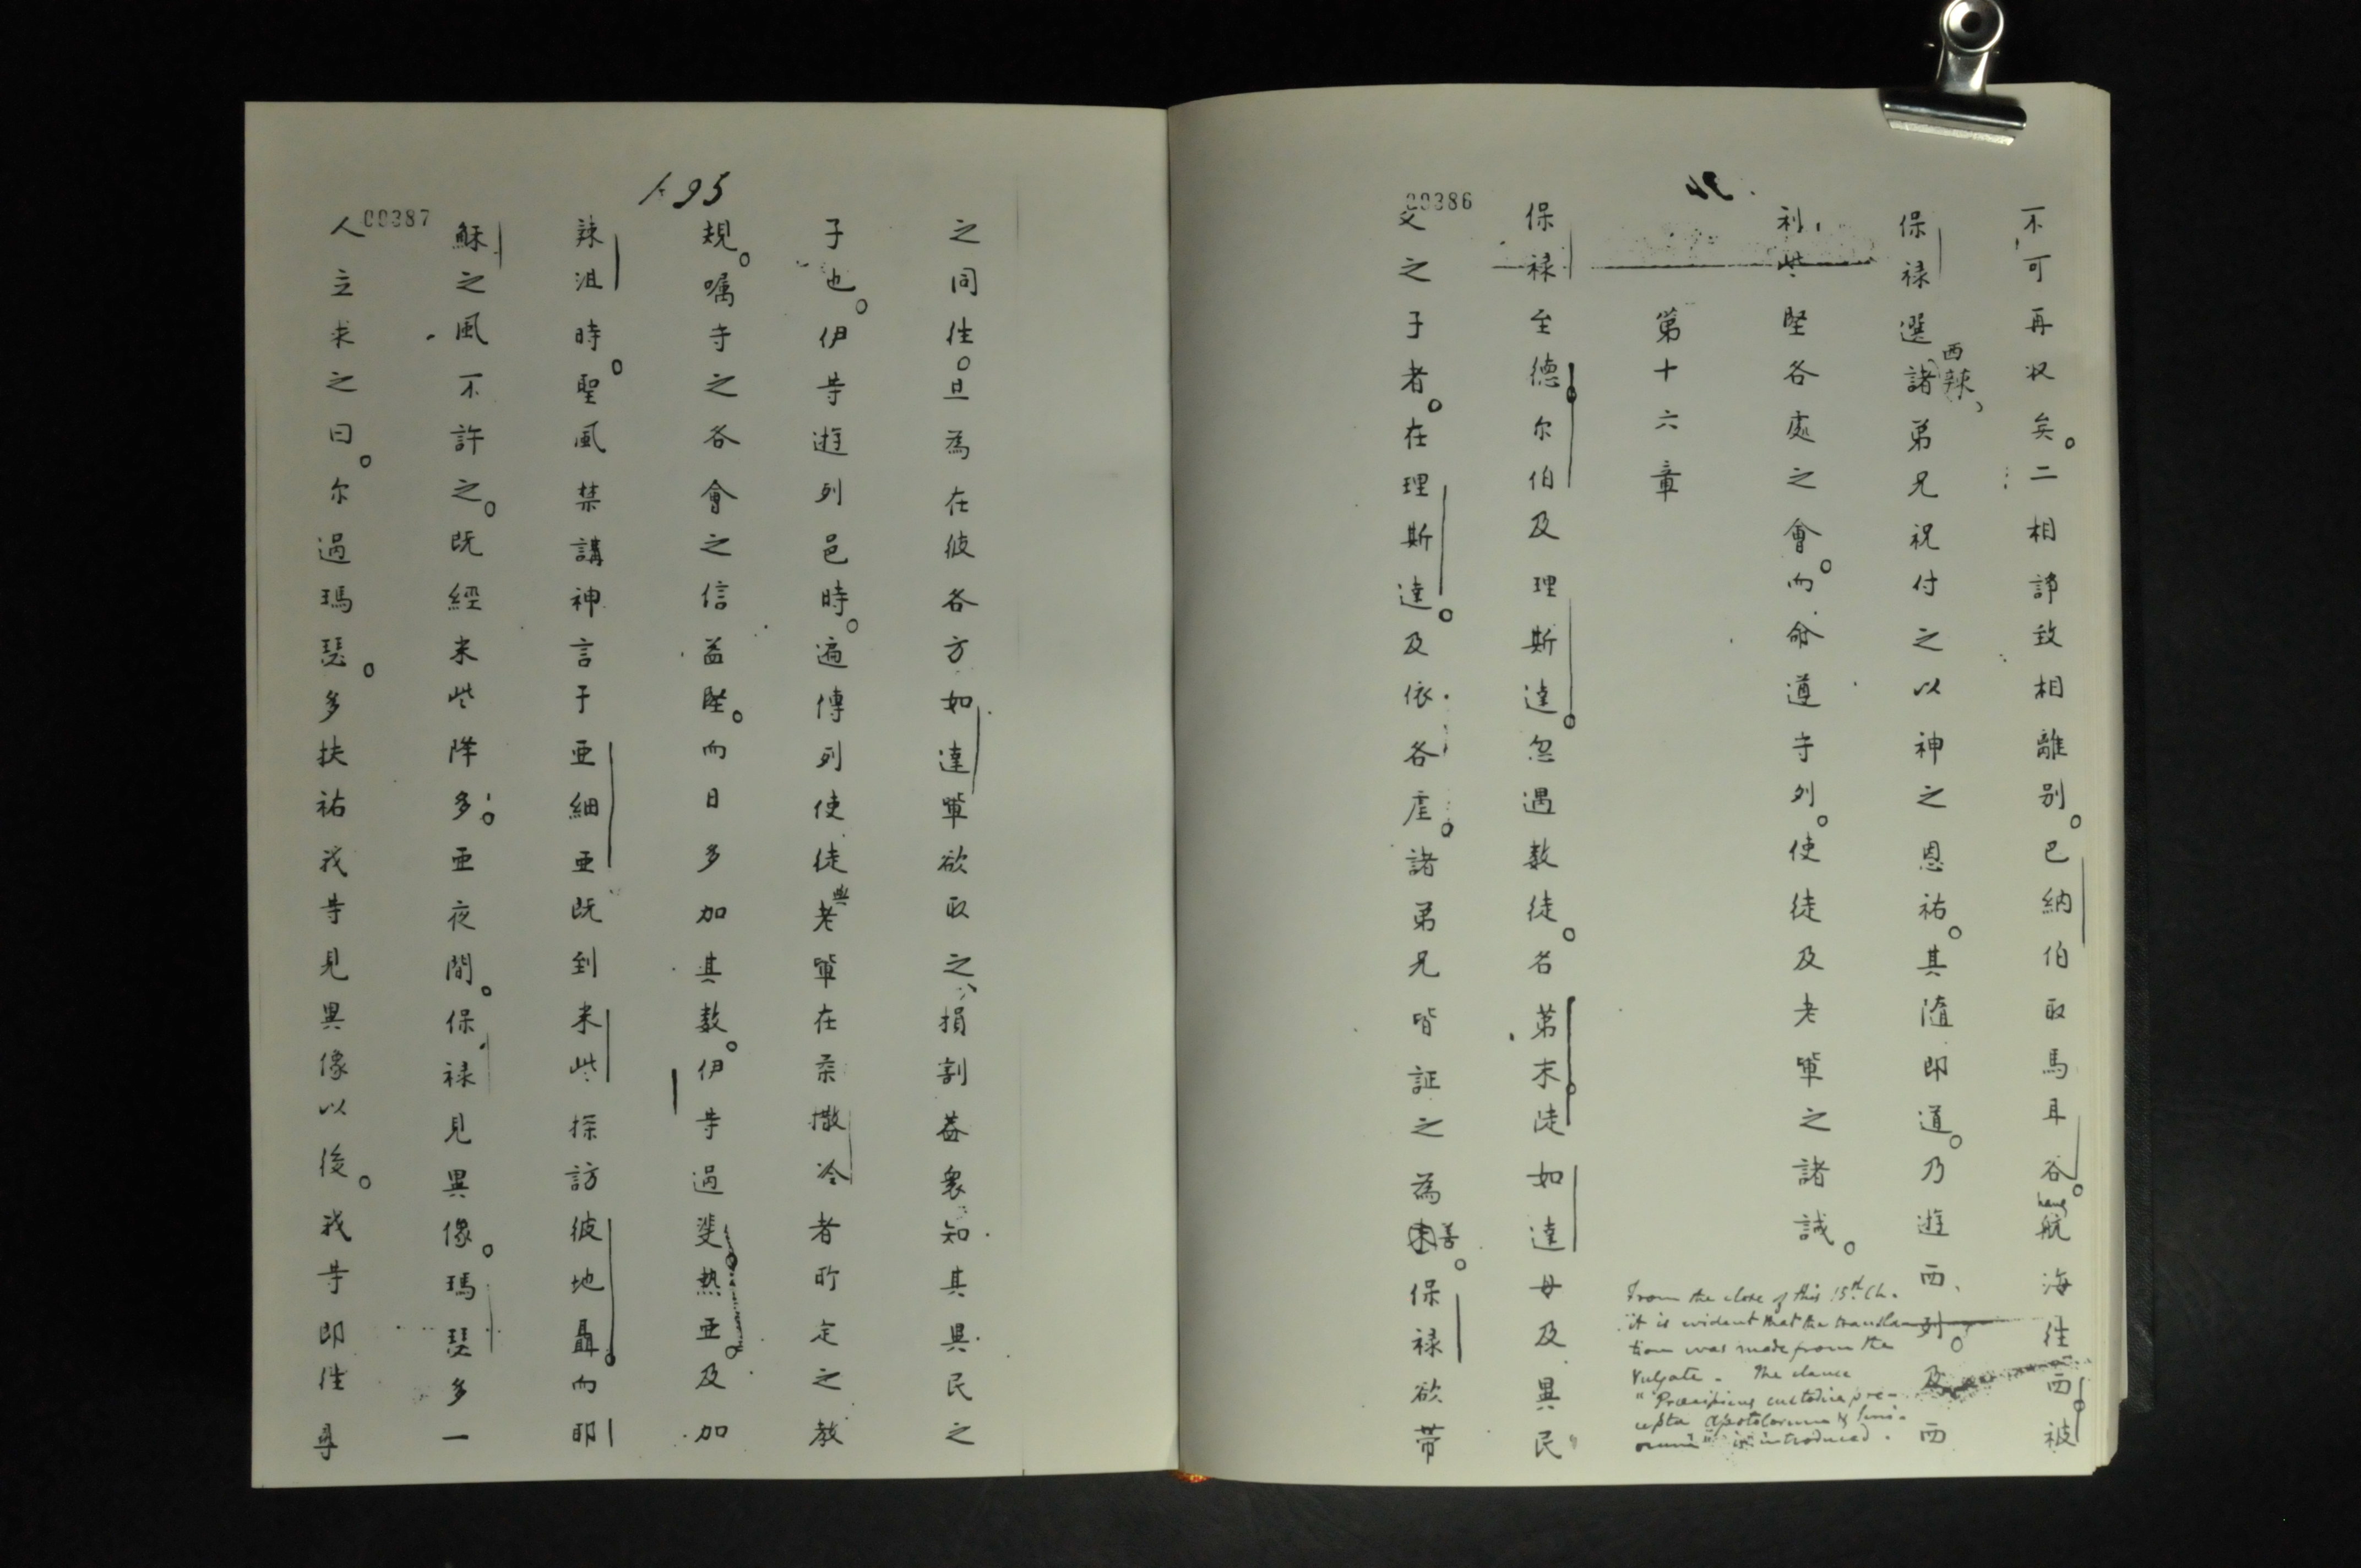 00386
不可再収矣。二相諍致相離别。巴納伯取馬耳谷。航海徃西被
保禄選諸弟兄祝付之以神之恩祐。其隨即道。乃遊西列。及西
西辣
利些堅各處之會。而命遵守列。使徒及老軰之諸誡。
From the close of this 15th Ch.
it is evident that the transla-
tion was made from the
Vulgate. The clause
"Præcipiens custodire præ-
cepta Apostolorum & Seni-
orum" is introduced.
第十六章
保禄至德尔伯及理斯達。忽遇数徒。名苐末陡如達母及異民
父之子者。在理斯達。及依各虗。諸弟兄皆証之為善。保禄欲带
195
00387
之同徃。旦為在彼各方如達軰欲取之損割葢衆知其異民之
子也。伊等遊列邑時。遍傳列使徒與老軰在柔撒冷者所定之教
規。嘱守之各會之信益堅。而日多加其数。伊等過斐。熱亜。及加
辣沮時。聖風禁講神言于亜細亜既到米些探訪彼地聶。而耶
穌之風不許之。既經米些降多。亜夜間。保禄見異像。瑪瑟多一
人立求之曰。尔過瑪瑟。多扶祐我等見異像以後。我等即徃尋